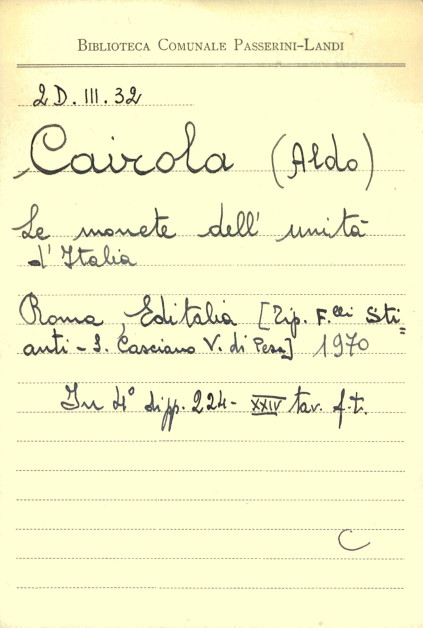 BIBLIOTECA COMUNALE PASSERINI-LANDI
2D. III. 32
Cairola (Aldo)
Le monete dell' unità
d'Italia
Roma, Editalia [Tip. F.lli Sti=
anti - S. Casciano V. di Pesa] 1970
In 4° di pp. 224 - XXIV tav. f.t.
C